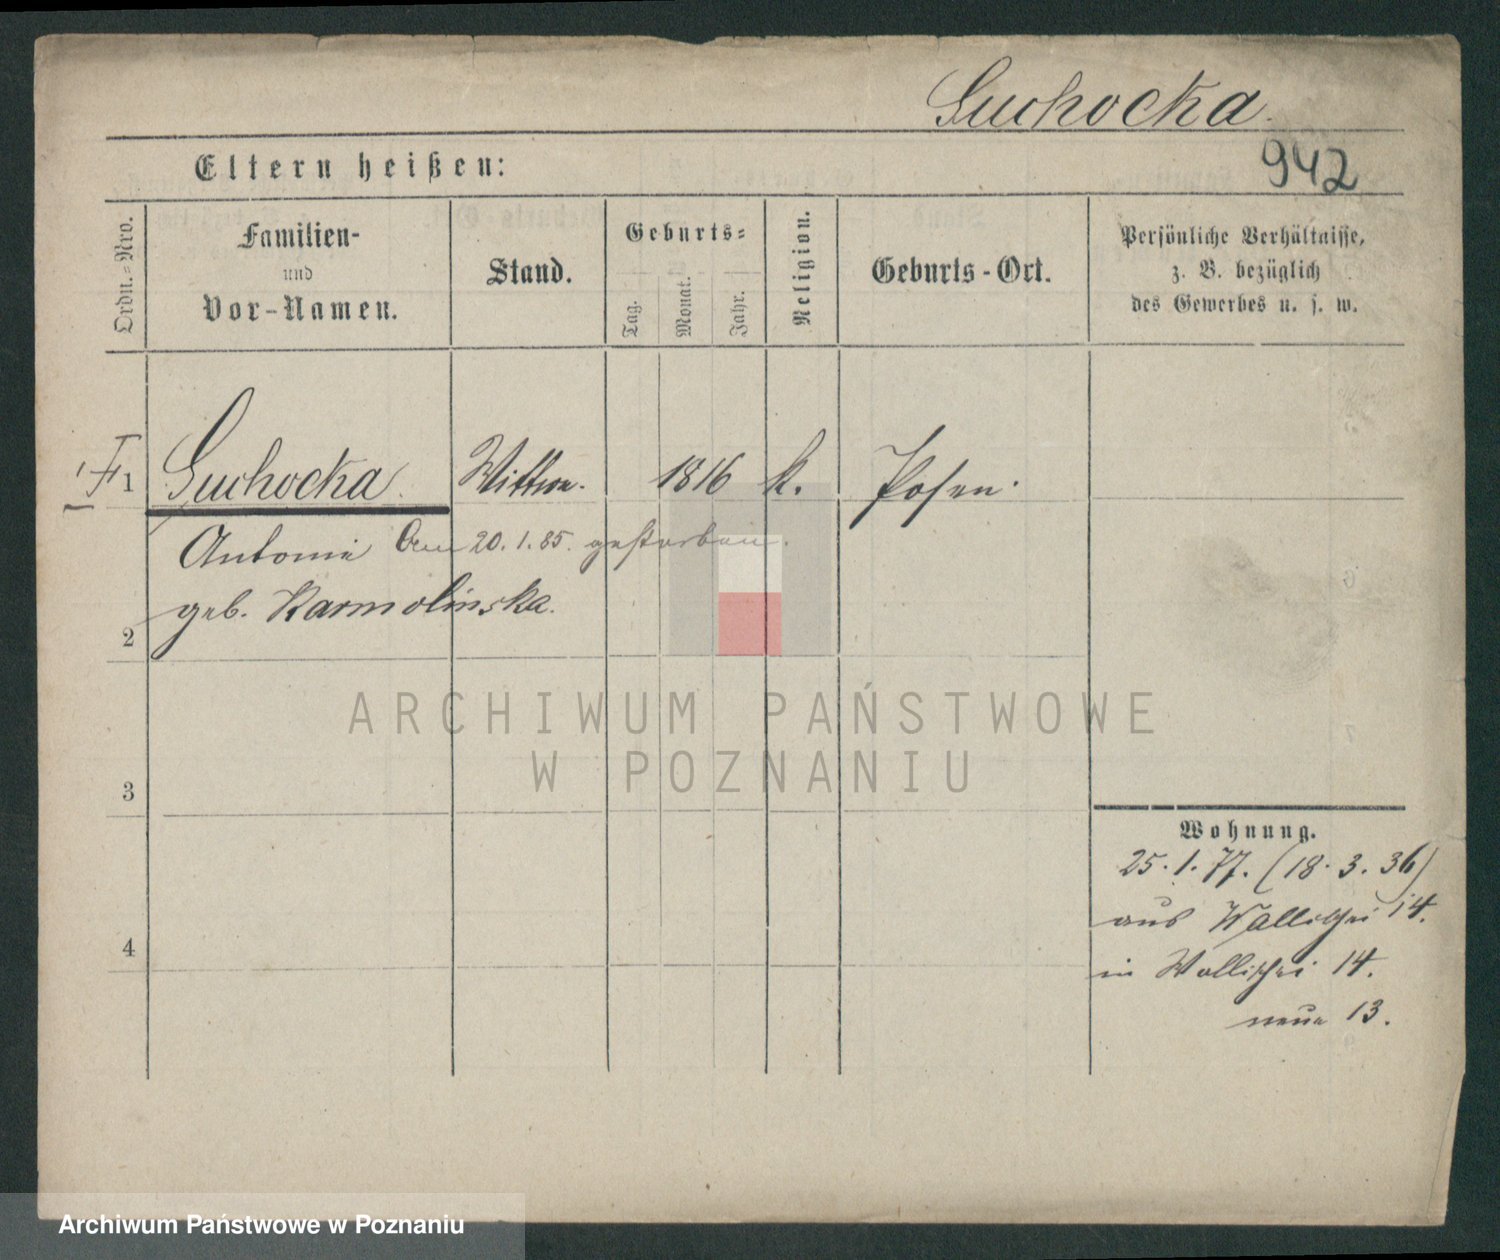 Suchocka.
942
Eltern heißen:
Ordn.=Nro.
Familien-
und
Vor-Namen.
Stand.
Geburts=
Tag.
Monat.
Jahr.
Religion.
Geburts-Ort.
Persönliche Verhältnisse,
z. B. bezüglich
des Gewerbes u. s. w.
1 Suchocka. Wittwe. 1816 k. Posen.
Antonie Am 20.1.85. gestorben.
geb. Karmolinska.
2
3
4
Wohnung.
25.1.77. (18.3.36)
aus Wallischei 14.
in Wallischei 14.
neue 13.
ARCHIWUM PAŃSTWOWE
W POZNANIU
Archiwum Państwowe w Poznaniu